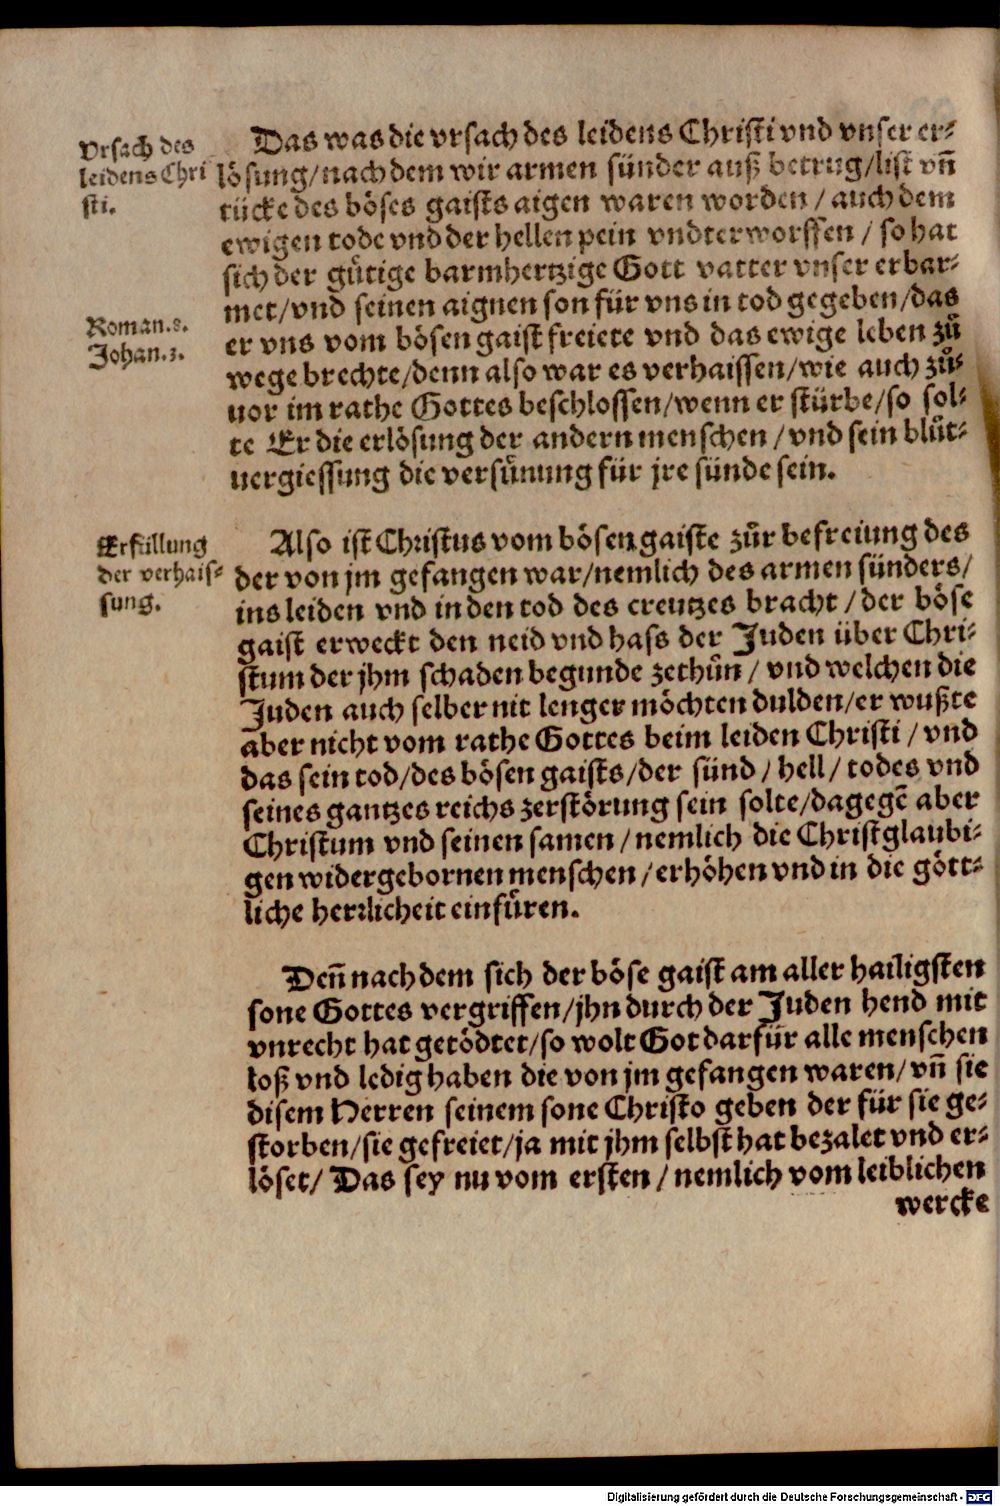 Vrsach des
leidens Chri
sti.
Das was die vrsach des leidens Christi vnd vnser er⸗
lösung/nach dem wir armen sünder auß betrug/list vn̄
tücke des böses gaists aigen waren worden / auch dem
ewigen tode vnd der hellen pein vndterworffen / so hat
sich der gütige barmhertzige Gott vatter vnser erbar⸗
met/vnd seinen aignen son für vns in tod gegeben/das
er vns vom bösen gaist freiete vnd das ewige leben zů
wege brechte/denn also war es verhaissen/wie auch zů⸗
uor im rathe Gottes beschlossen/wenn er stürbe/so sol⸗
te Er die erlösung der andern menschen / vnd sein blůt⸗
uergiessung die versůnung für jre sünde sein.
Roman.8.
Johan.3.
Erfüllung
der verhais⸗
sung.
Also ist Christus vom bösen gaiste zůr befreiung des
der von jm gefangen war/nemlich des armen sünders/
ins leiden vnd in den tod des creutzes bracht / der böse
gaist erweckt den neid vnd hass der Juden über Chri⸗
stum der jhm schaden begunde zethůn / vnd welchen die
Juden auch selber nit lenger möchten dulden/er wußte
aber nicht vom rathe Gottes beim leiden Christi / vnd
das sein tod/des bösen gaists/der sünd / hell / todes vnd
seines gantzes reichs zerstörung sein solte/dagegē aber
Christum vnd seinen samen / nemlich die Christglaubi⸗
gen widergebornen menschen / erhöhen vnd in die gött⸗
liche herrlicheit einfüren.
Den̄ nach dem sich der böse gaist am aller hailigsten
sone Gottes vergriffen/jhn durch der Juden hend mit
vnrecht hat getödtet/so wolt Got darfür alle menschen
loß vnd ledig haben die von jm gefangen waren/ vn̄ sie
disem Herren seinem sone Christo geben der für sie ge⸗
storben/sie gefreiet/ja mit jhm selbst hat bezalet vnd er⸗
löset/ Das sey nu vom ersten / nemlich vom leiblichen
wercke
Digitalisierung gefördert durch die Deutsche Forschungsgemeinschaft - DFG